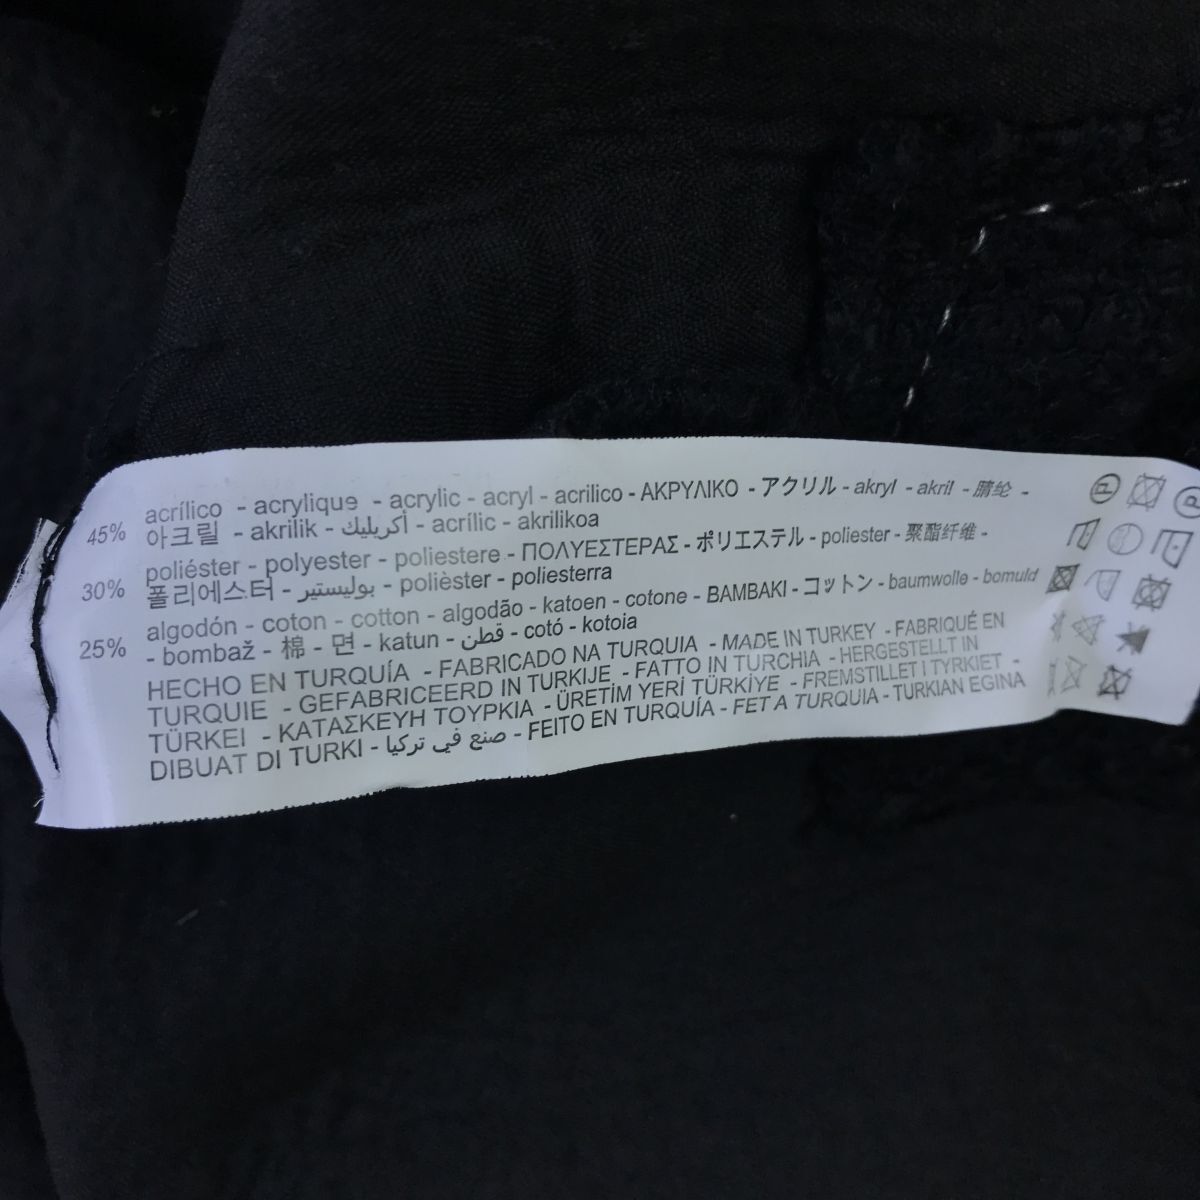 45% acrílico - acrylique - acrylic - acryl - acrilico - ΑΚΡΥΛΙΚΟ - アクリル - akryl - akril - 腈纶 -
아크릴 - akrilik - أكريليك - acrílic - akrilikoa
30% poliéster - polyester - poliestere - ΠΟΛΥΕΣΤΕΡΑΣ - ポリエステル - poliester - 聚酯纤维 -
폴리에스터 - بوليستير - polièster - poliesterra
25% algodón - coton - cotton - algodão - katoen - cotone - BAMBAKI - コットン - baumwolle - bomuld
- bombaž - 棉 - 면 - katun - قطن - cotó - kotoia
HECHO EN TURQUÍA - FABRICADO NA TURQUIA - MADE IN TURKEY - FABRIQUÉ EN
TURQUIE - GEFABRICEERD IN TURKIJE - FATTO IN TURCHIA - HERGESTELLT IN
TÜRKEI - ΚΑΤΑΣΚΕΥΗ ΤΟΥΡΚΙΑ - ÜRETİM YERİ TÜRKİYE - FREMSTILLET I TYRKIET -
DIBUAT DI TURKI - صنع في تركيا - FEITO EN TURQUÍA - FET A TURQUIA - TURKIAN EGINA